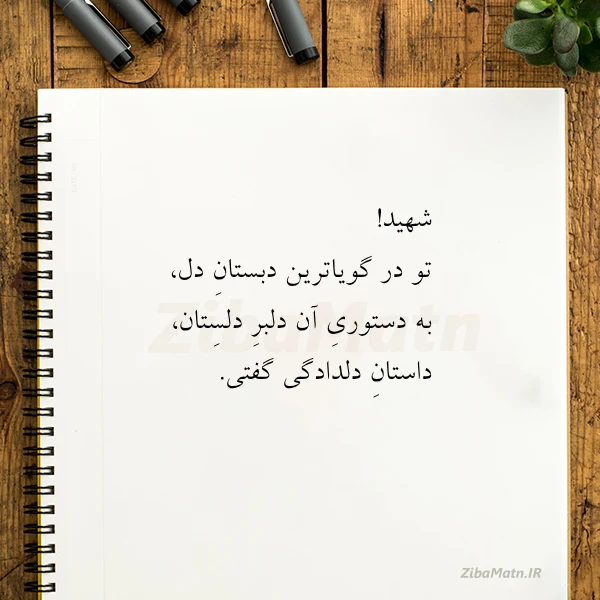 شهید!
تو در گویاترین دبستانِ دل،
به دستوریِ آن دلبرِ دلسِتان،
داستانِ دلدادگی گفتی.
ZibaMatn
ZibaMatn.IR